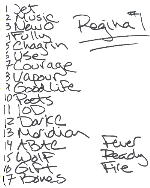 1 Jet
2 Music
3 News
4 Fully
5 Chagrin
6 Used
7 Courage
8 Vapour
9 Good Life
10 Poets
11 ISC
12 Darkc
13 Meridian
14 ABAC
15 Wolf
16 Gift
17 Bones
Regina #1
Fever
Ready
Fire